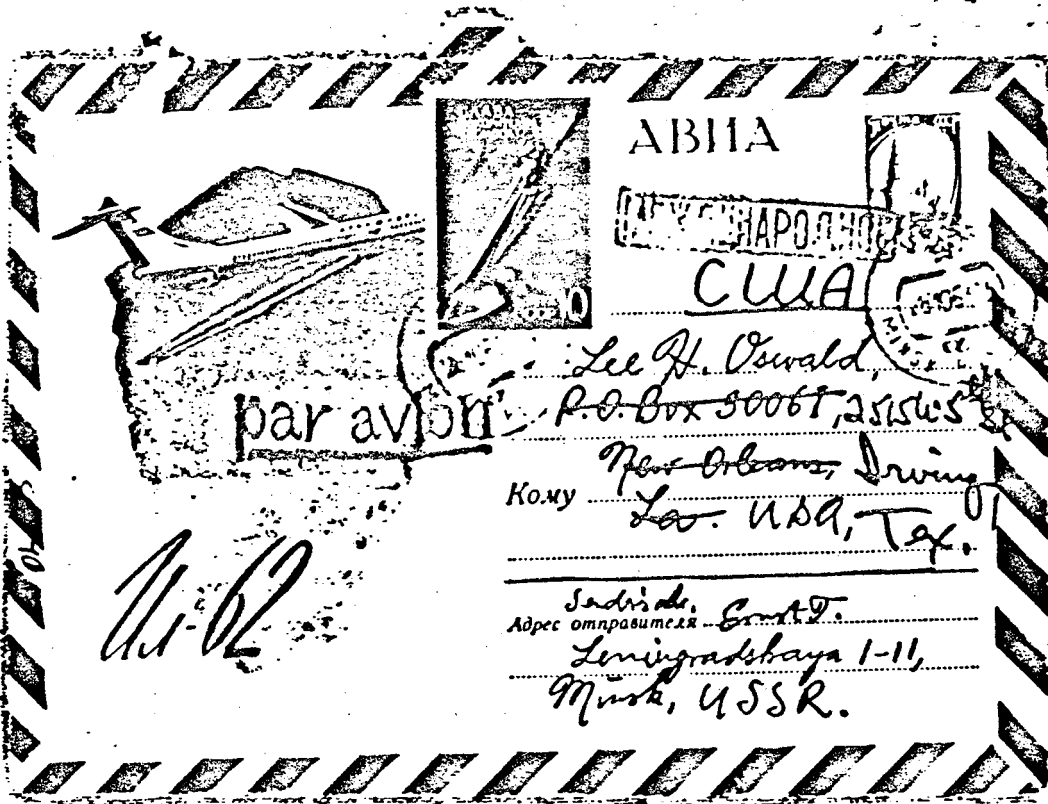 АВИА
МЕЖДУНАРОДНОЕ
США
par avion
Lee H. Oswald,
P.O. Box 30061, 2515 W. 5th St.
New Orleans, Irving,
Кому La. USA, Tex.
Ил-62
Sender's adr.
Адрес отправителя Ernst T.
Leningradskaya 1-11,
Minsk, USSR.